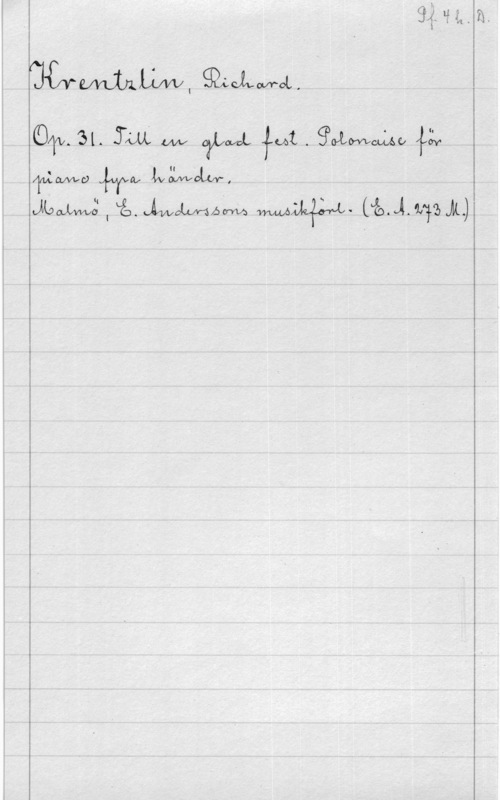 Pf. 4 h. D.
Krentzlin, Richard.
Op. 31. Till en glad fest. Polonaise för
piano fyra händer.
Malmö, E. Anderssons musikförl. (E. A. 273 M.)